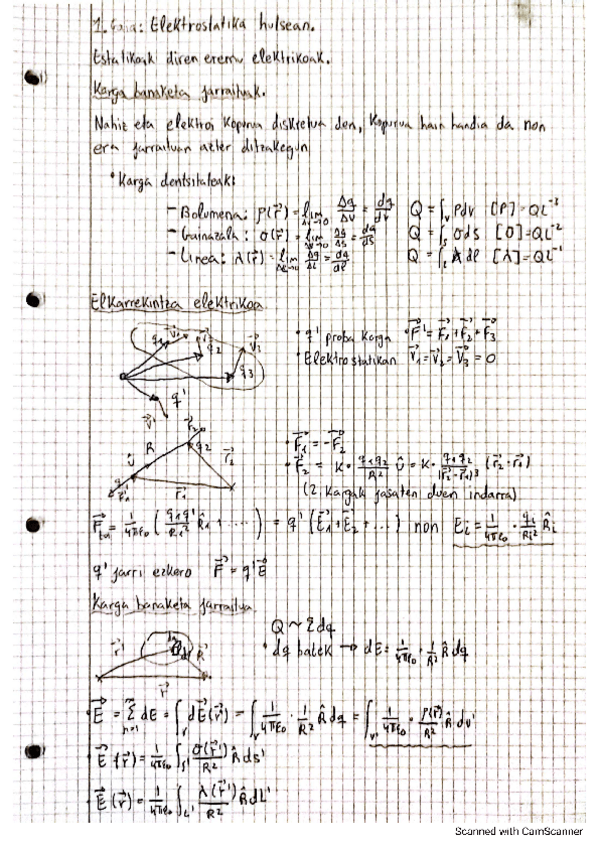 1. Gaia: Elektrostatika hutsean.
Estatikoak diren eremu elektrikoak.
Karga banaketa jarraituak.
Nahiz eta elektroi kopurua diskretua den, kopurua hain handia da non
era jarraituan azter ditzakegun
• Karga dentsitateak:
- Bolumena: ρ(r⃗) = lim Δv→0 Δq/Δv = dq/dv   Q = ∫_v ρdv   [ρ] = QL⁻³
- Gainazala: σ(r⃗) = lim Δs→0 Δq/Δs = dq/ds   Q = ∫_s σds   [σ] = QL⁻²
- Linea: λ(r⃗) = lim Δl→0 Δq/Δl = dq/dl   Q = ∫_L λdl   [λ] = QL⁻¹
Elkarrekintza elektrikoa
q1 v⃗1 r⃗1 q2 v⃗3 q3 q' v⃗'
• q' proba karga • F⃗' = F⃗1 + F⃗2 + F⃗3
• Elektrostatikan v⃗1 = v⃗2 = v⃗3 = 0
F⃗2 q2 R û r⃗2 r⃗1 F⃗1
• F⃗1 = -F⃗2
• F⃗2 = K · q1q2/R² û = K · q1q2/|r⃗2-r⃗1|³ (r⃗2-r⃗1)
(2. kargak jasaten duen indarra)
F⃗tot = 1/4πε0 (q1q'/R1² R̂1 + ....) = q' (E⃗1 + E⃗2 + ...) non E⃗i = 1/4πε0 · qi/Ri² R̂i
q' jarri ezkero F⃗ = q'E⃗
Karga banaketa jarraitua
r⃗' dq R⃗ r⃗
Q ~ Σdq
• dq batek → dE = 1/4πε0 · 1/R² R̂ dq
• E⃗ = Σ n=1 dE = ∫_v dE⃗(r⃗) = ∫_v' 1/4πε0 · 1/R² R̂ dq = ∫_v' 1/4πε0 · ρ(r⃗')/R² R̂ dv'
• E⃗(r⃗) = 1/4πε0 ∫_s' σ(r⃗')/R² R̂ ds'
• E⃗(r⃗) = 1/4πε0 ∫_L' λ(r⃗')/R² R̂ dL'
Scanned with CamScanner